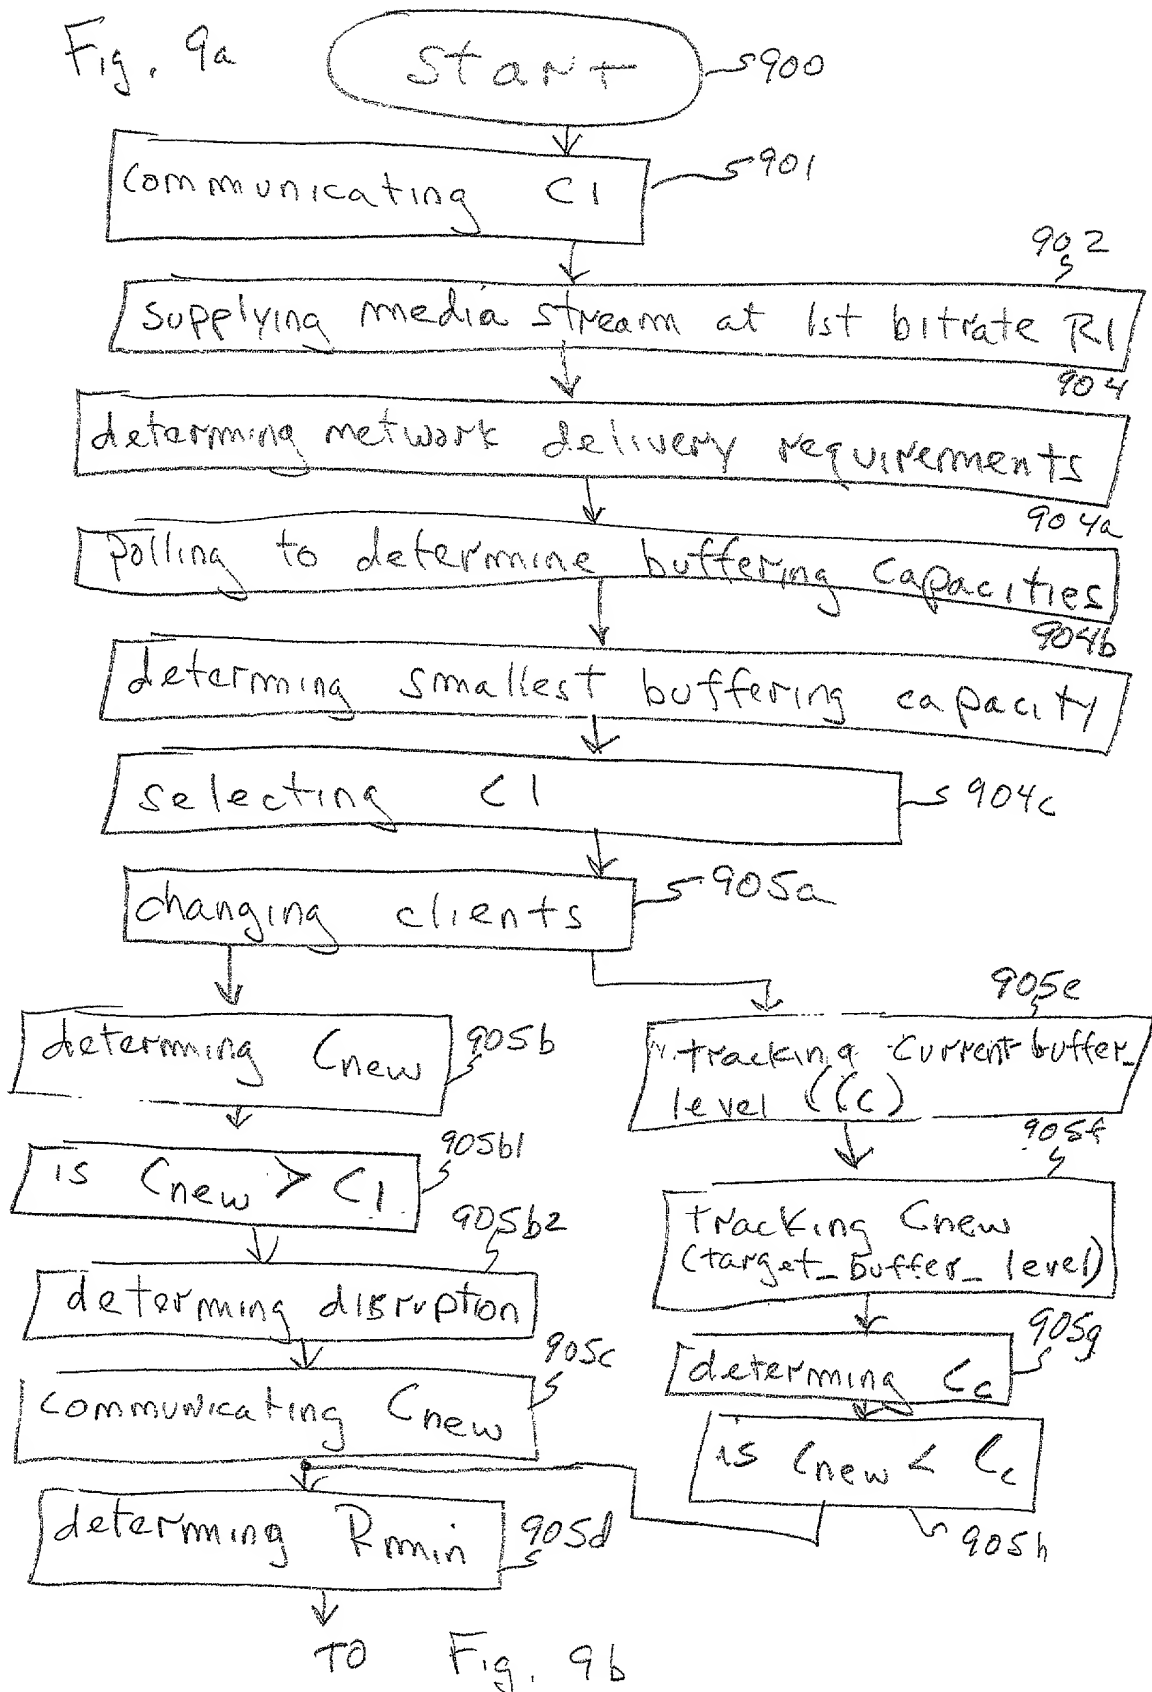 Fig. 9a
Start
900
communicating C1
901
902
supplying media stream at 1st bitrate R1
904
determing network delivery requirements
904a
polling to determine buffering capacities
904b
determing smallest buffering capacity
selecting C1
904c
changing clients
905a
determing Cnew
905b
is Cnew > C1
905b1
905b2
determing disruption
905c
communicating Cnew
determing Rmin
905d
905e
tracking current-buffer_
level (Cc)
905f
tracking Cnew
(target_buffer_level)
905g
determing Cc
is Cnew < Cc
905h
TO Fig. 9b